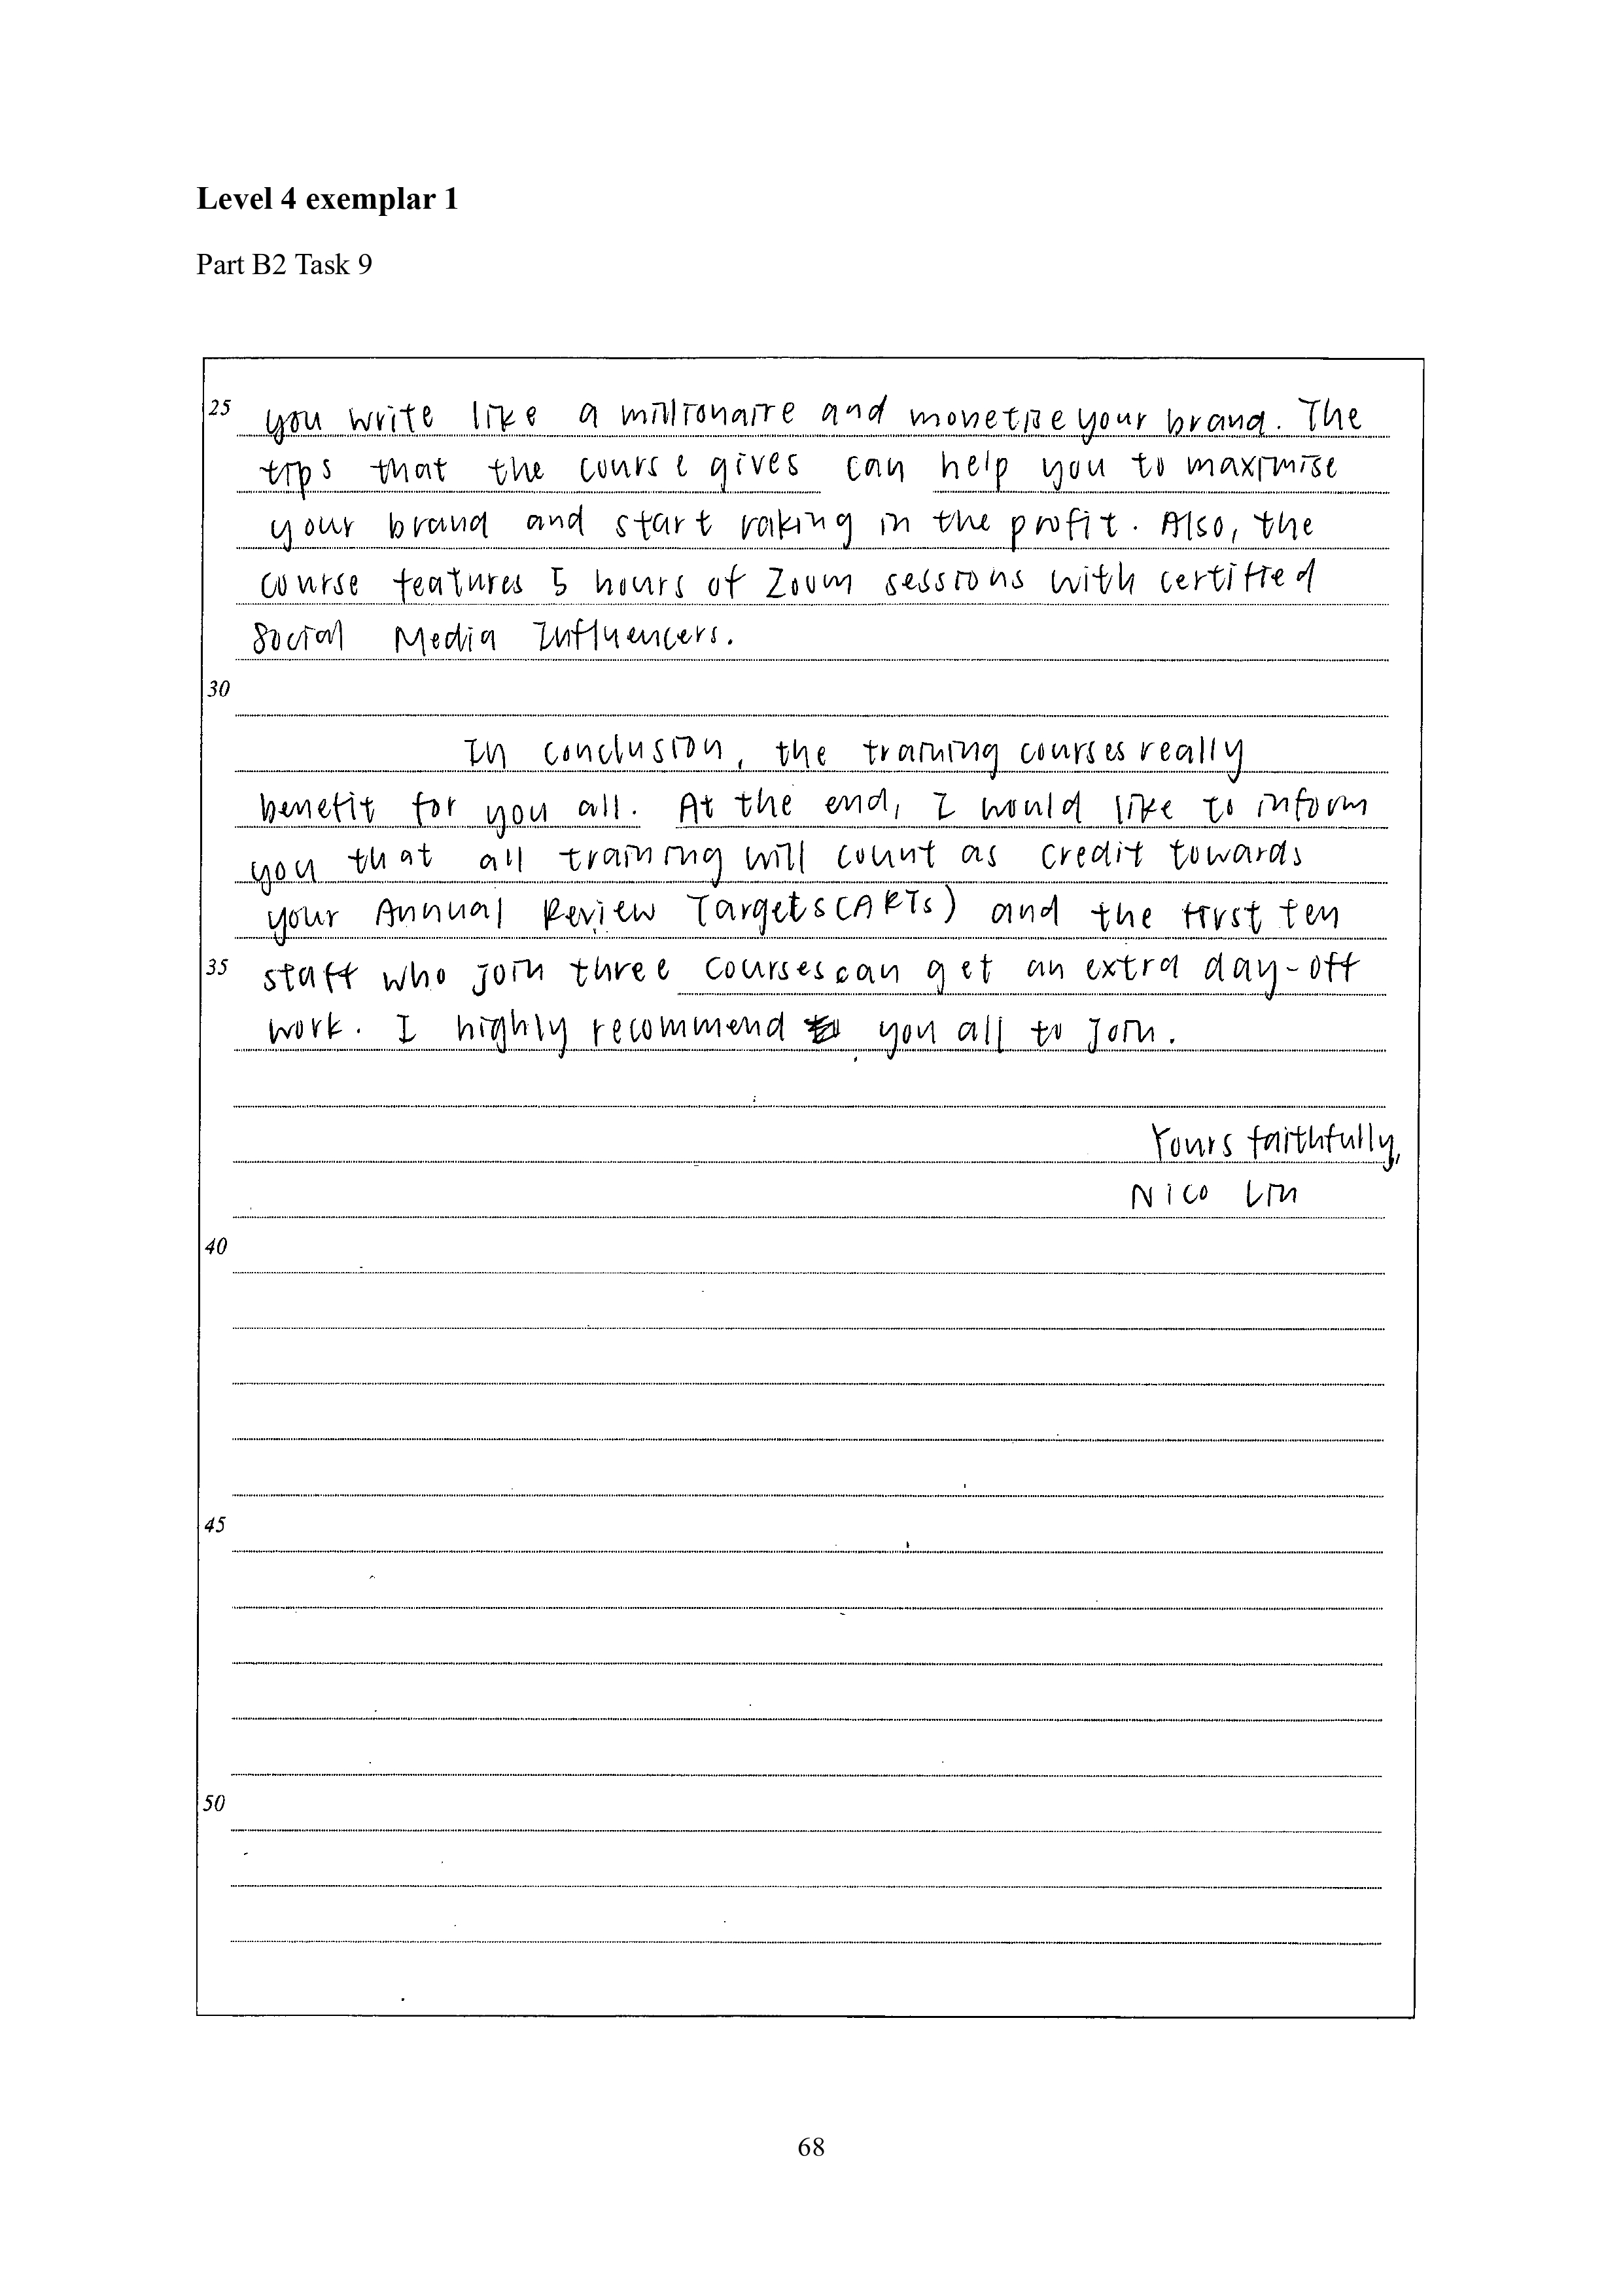 Level 4 exemplar 1
Part B2 Task 9
25 you write like a millionaire and monetise your brand. The
tips that the course gives can help you to maximise
your brand and start raking in the profit. Also, the
course features 5 hours of Zoom sessions with certified
Social Media Influencers.
30
In conclusion, the training courses really
benefit for you all. At the end, I would like to inform
you that all training will count as credit towards
your Annual Review Targets(ARTs) and the first ten
35 staff who join three courses can get an extra day-off
work. I highly recommend you all to join.
Yours faithfully,
Nico Lin
40
45
50
68